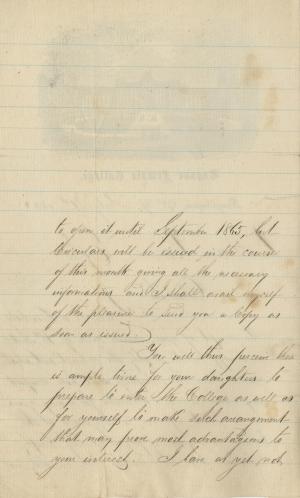 to open it until September 1865, but
Circulars will be issued in the course
of this month giving all the necessary
informations and I shall avail myself
of the pleasure to send you a Copy as
soon as issued.
You will thus perceive there
is ample time for your daughters to
prepare to enter the College as well as
for yourself to make such arrangement
that may prove most advantageous to
your interest. I have as yet not